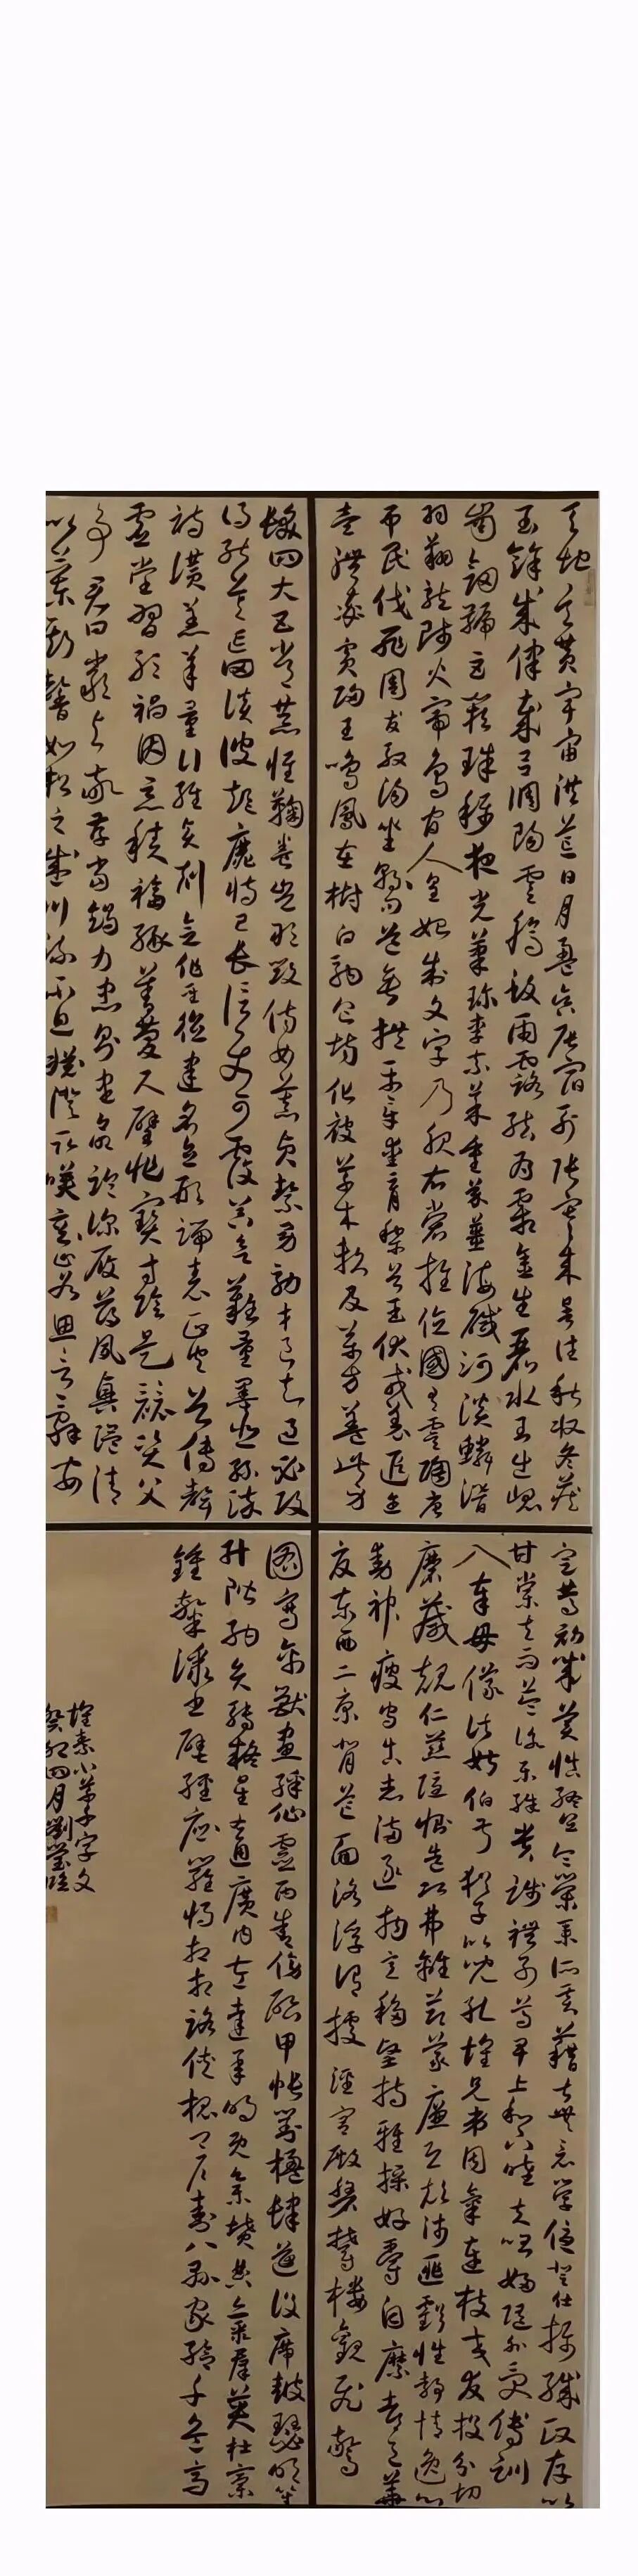 天地玄黃宇宙洪荒日月盈昃辰宿列張寒來暑往秋收冬藏
閏餘成律歲召調陽雲騰致雨露結為霜金生麗水玉出崑
崗劍號巨闕珠稱夜光菓珍李柰菜重芥薑海鹹河淡鱗潛
羽翔龍師火帝鳥官人皇始制文字乃服衣裳推位國有虞陶唐
弔民伐罪周發殷湯坐朝問道垂拱平章愛育黎首臣伏戎羌遐迩
壹體率賓歸王鳴鳳在樹白駒食場化被草木賴及萬方蓋此身
髮四大五常恭惟鞠養豈敢毀傷女慕貞絜男效才良知過必改
得能莫忘罔談彼短靡恃己長信使可覆器欲難量墨悲絲染
詩讚羔羊景行維賢剋念作聖德建名立形端表正空谷傳聲
虛堂習聽禍因惡積福緣善慶尺璧非寶寸陰是競資父
事君曰嚴與敬孝當竭力忠則盡命臨深履薄夙興溫清
似蘭斯馨如松之盛川流不息淵澄取暎容止若思言辭安
定篤初誠美慎終宜令榮業所基藉甚無竟學優登仕攝職從政存以
甘棠去而益詠樂殊貴賤禮別尊卑上和下睦夫唱婦隨外受傅訓
入奉母儀諸姑伯叔猶子比兒孔懷兄弟同氣連枝交友投分切
磨箴規仁慈隱惻造次弗離節義廉退顛沛匪虧性靜情逸心
動神疲守真志滿逐物意移堅持雅操好爵自縻都邑華
夏東西二京背芒面洛浮渭據涇宮殿盤鬱樓觀飛驚
圖寫禽獸畫彩仙靈丙舍傍啟甲帳對楹肆筵設席鼓瑟吹笙
升階納陛弁轉疑星右通廣內左達承明既集墳典亦聚群英杜稾
鍾隸漆書壁經府羅將相路俠槐卿戶封八縣家給千兵高
懷素小草千字文
癸卯四月劉瑩臨